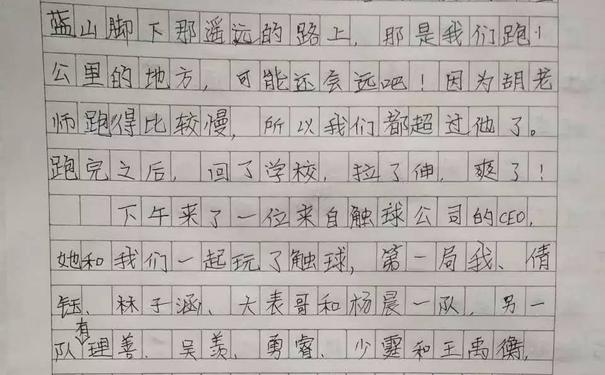 蓝山脚下那遥远的路上，那是我们跑1
公里的地方，可能还会远吧！因为胡老
师跑得比较慢，所以我们都超过他了。
跑完之后，回了学校，拉了伸，爽了！
下午来了一位来自触球公司的CEO，
她和我们一起玩了触球，第一局我、倩
钰、林子涵、大表哥和杨晨一队，另一
队有理善、吴羡、勇睿、少霆和王禹衡，